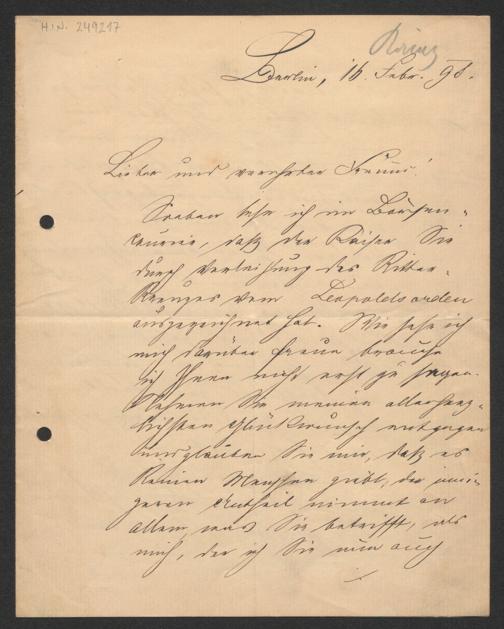 H.I.N. 249217
Berlin, 16. Febr. 98.
Lieber und verehrter Freund!
Soeben lese ich im Börsen-
courier, daß der Kaiser Sie
durch Verleihung des Ritter-
Kreuzes vom Leopoldsorden
ausgezeichnet hat. Wie sehr ich
mich darüber freue brauche
ich Ihnen nicht erst zu sagen.
Nehmen Sie meinen allerherz-
lichsten Glückwunsch entgegen
und glauben Sie mir, daß es
keinen Menschen gibt, der inni-
geren Antheil nimmt an
allem, was Sie betrifft, als
mich, der ich Sie nun auch